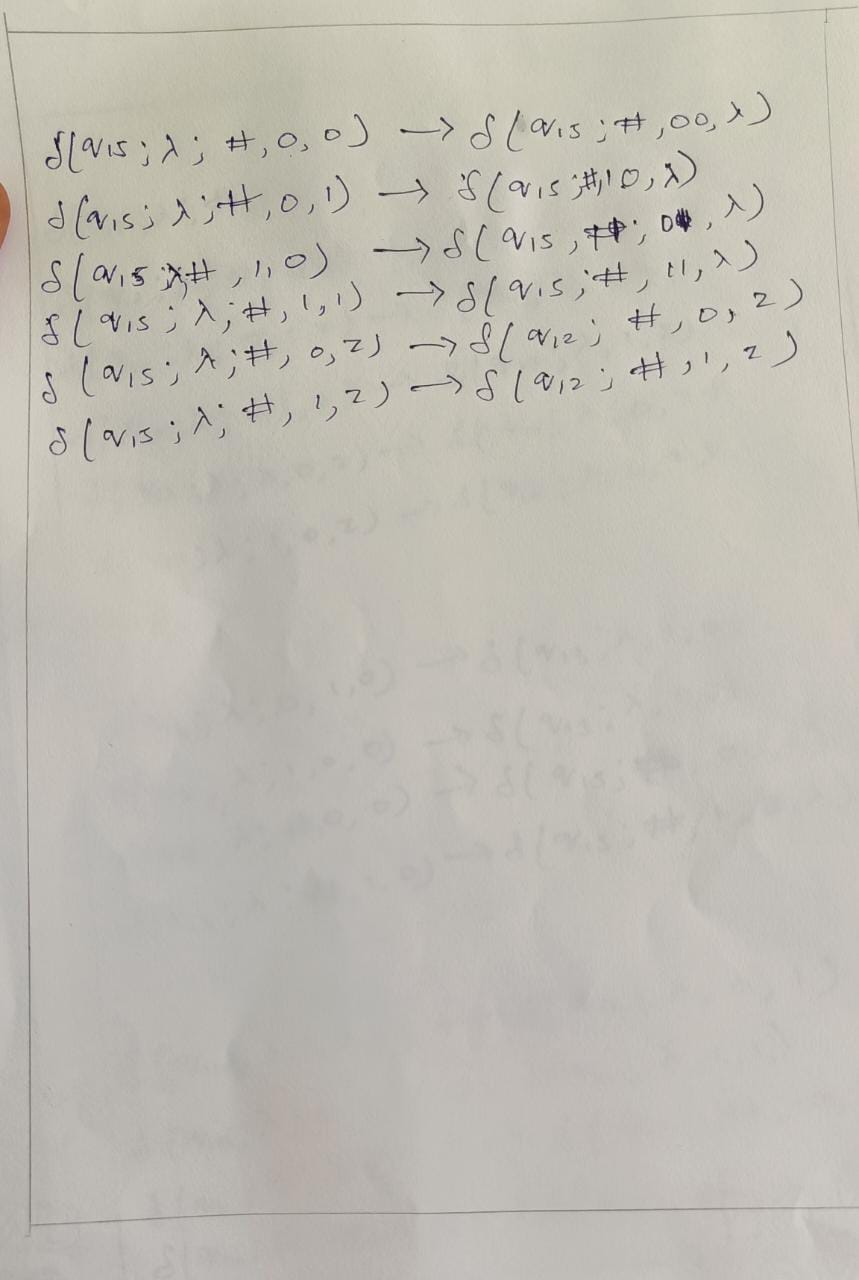 δ(q15; λ; #, 0, 0) → δ(q15; #, 00, λ)
δ(q15; λ; #, 0, 1) → δ(q15; #, 10, λ)
δ(q15; λ; #, 1, 0) → δ(q15, #; 0, λ)
δ(q15; λ; #, 1, 1) → δ(q15; #, 11, λ)
δ(q15; λ; #, 0, z) → δ(q12; #, 0, z)
δ(q15; λ; #, 1, z) → δ(q12; #, 1, z)